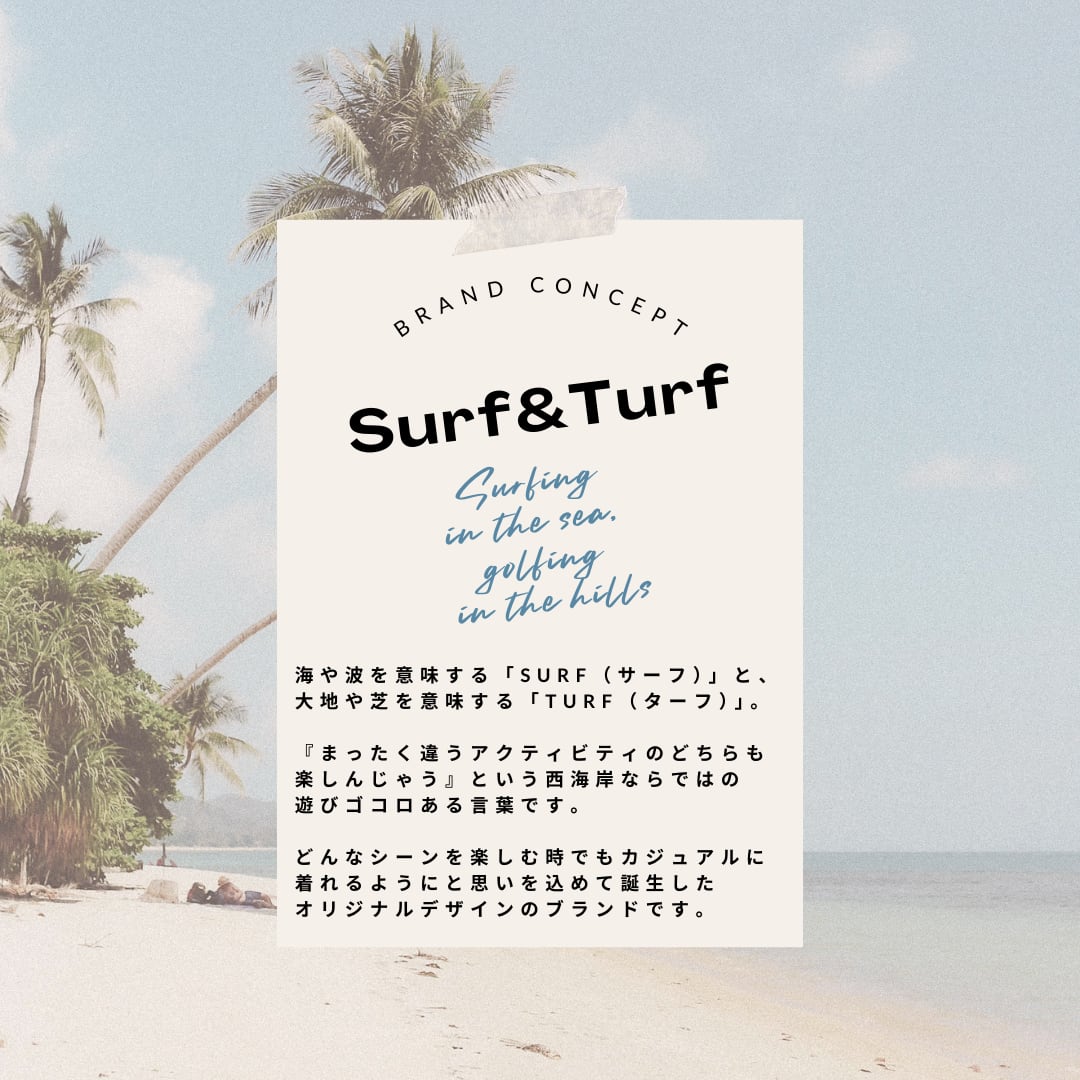 BRAND CONCEPT
Surf&Turf
Surfing
in the sea,
golfing
in the hills
海や波を意味する「SURF（サーフ）」と、
大地や芝を意味する「TURF（ターフ）」。
『まったく違うアクティビティのどちらも
楽しんじゃう』という西海岸ならではの
遊びゴコロある言葉です。
どんなシーンを楽しむ時でもカジュアルに
着れるようにと思いを込めて誕生した
オリジナルデザインのブランドです。